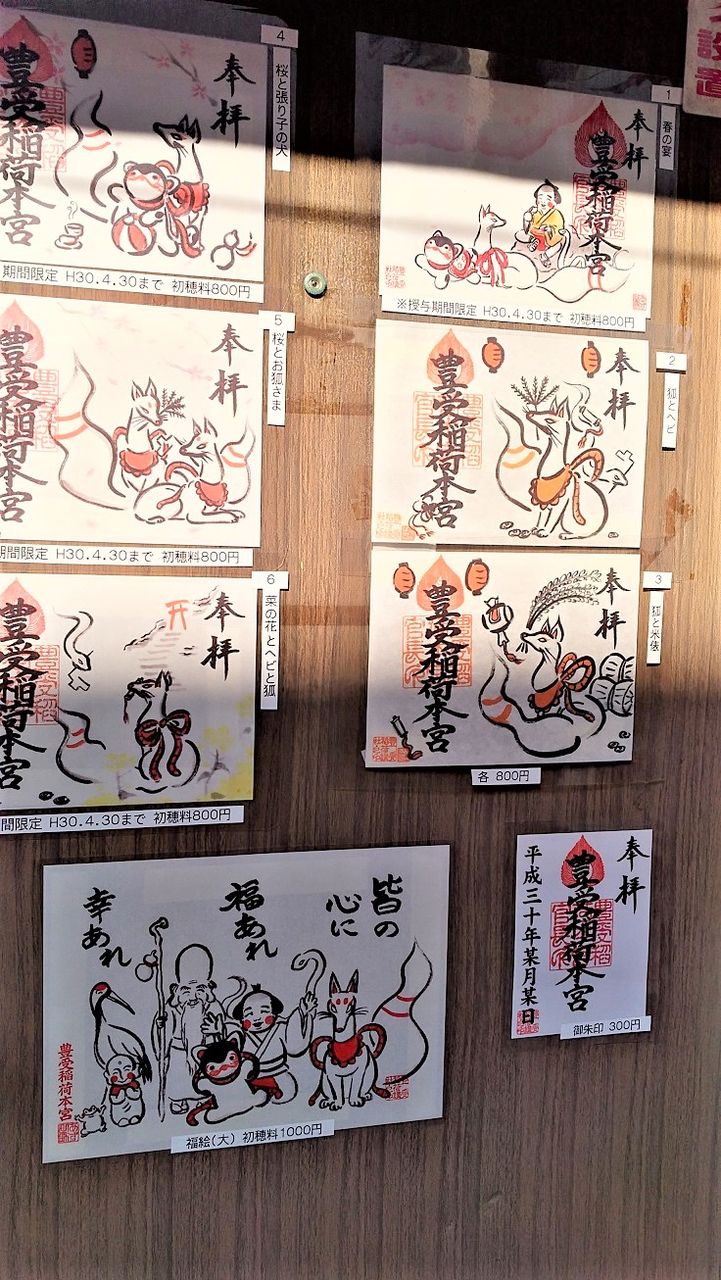 設置
1
春の宴
奉拝
豊受稲荷本宮
※授与期間限定 H30.4.30まで 初穂料800円
2
狐とヘビ
奉拝
豊受稲荷本宮
3
狐と米俵
奉拝
豊受稲荷本宮
各 800円
4
桜と張り子の犬
奉拝
豊受稲荷本宮
期間限定 H30.4.30まで 初穂料800円
5
桜とお狐さま
奉拝
豊受稲荷本宮
期間限定 H30.4.30まで 初穂料800円
6
菜の花とヘビと狐
奉拝
豊受稲荷本宮
間限定 H30.4.30まで 初穂料800円
皆の
心に
福あれ
幸あれ
豊受稲荷本宮
福絵(大) 初穂料1000円
奉拝
豊受稲荷本宮
平成三十年某月某日
御朱印 300円